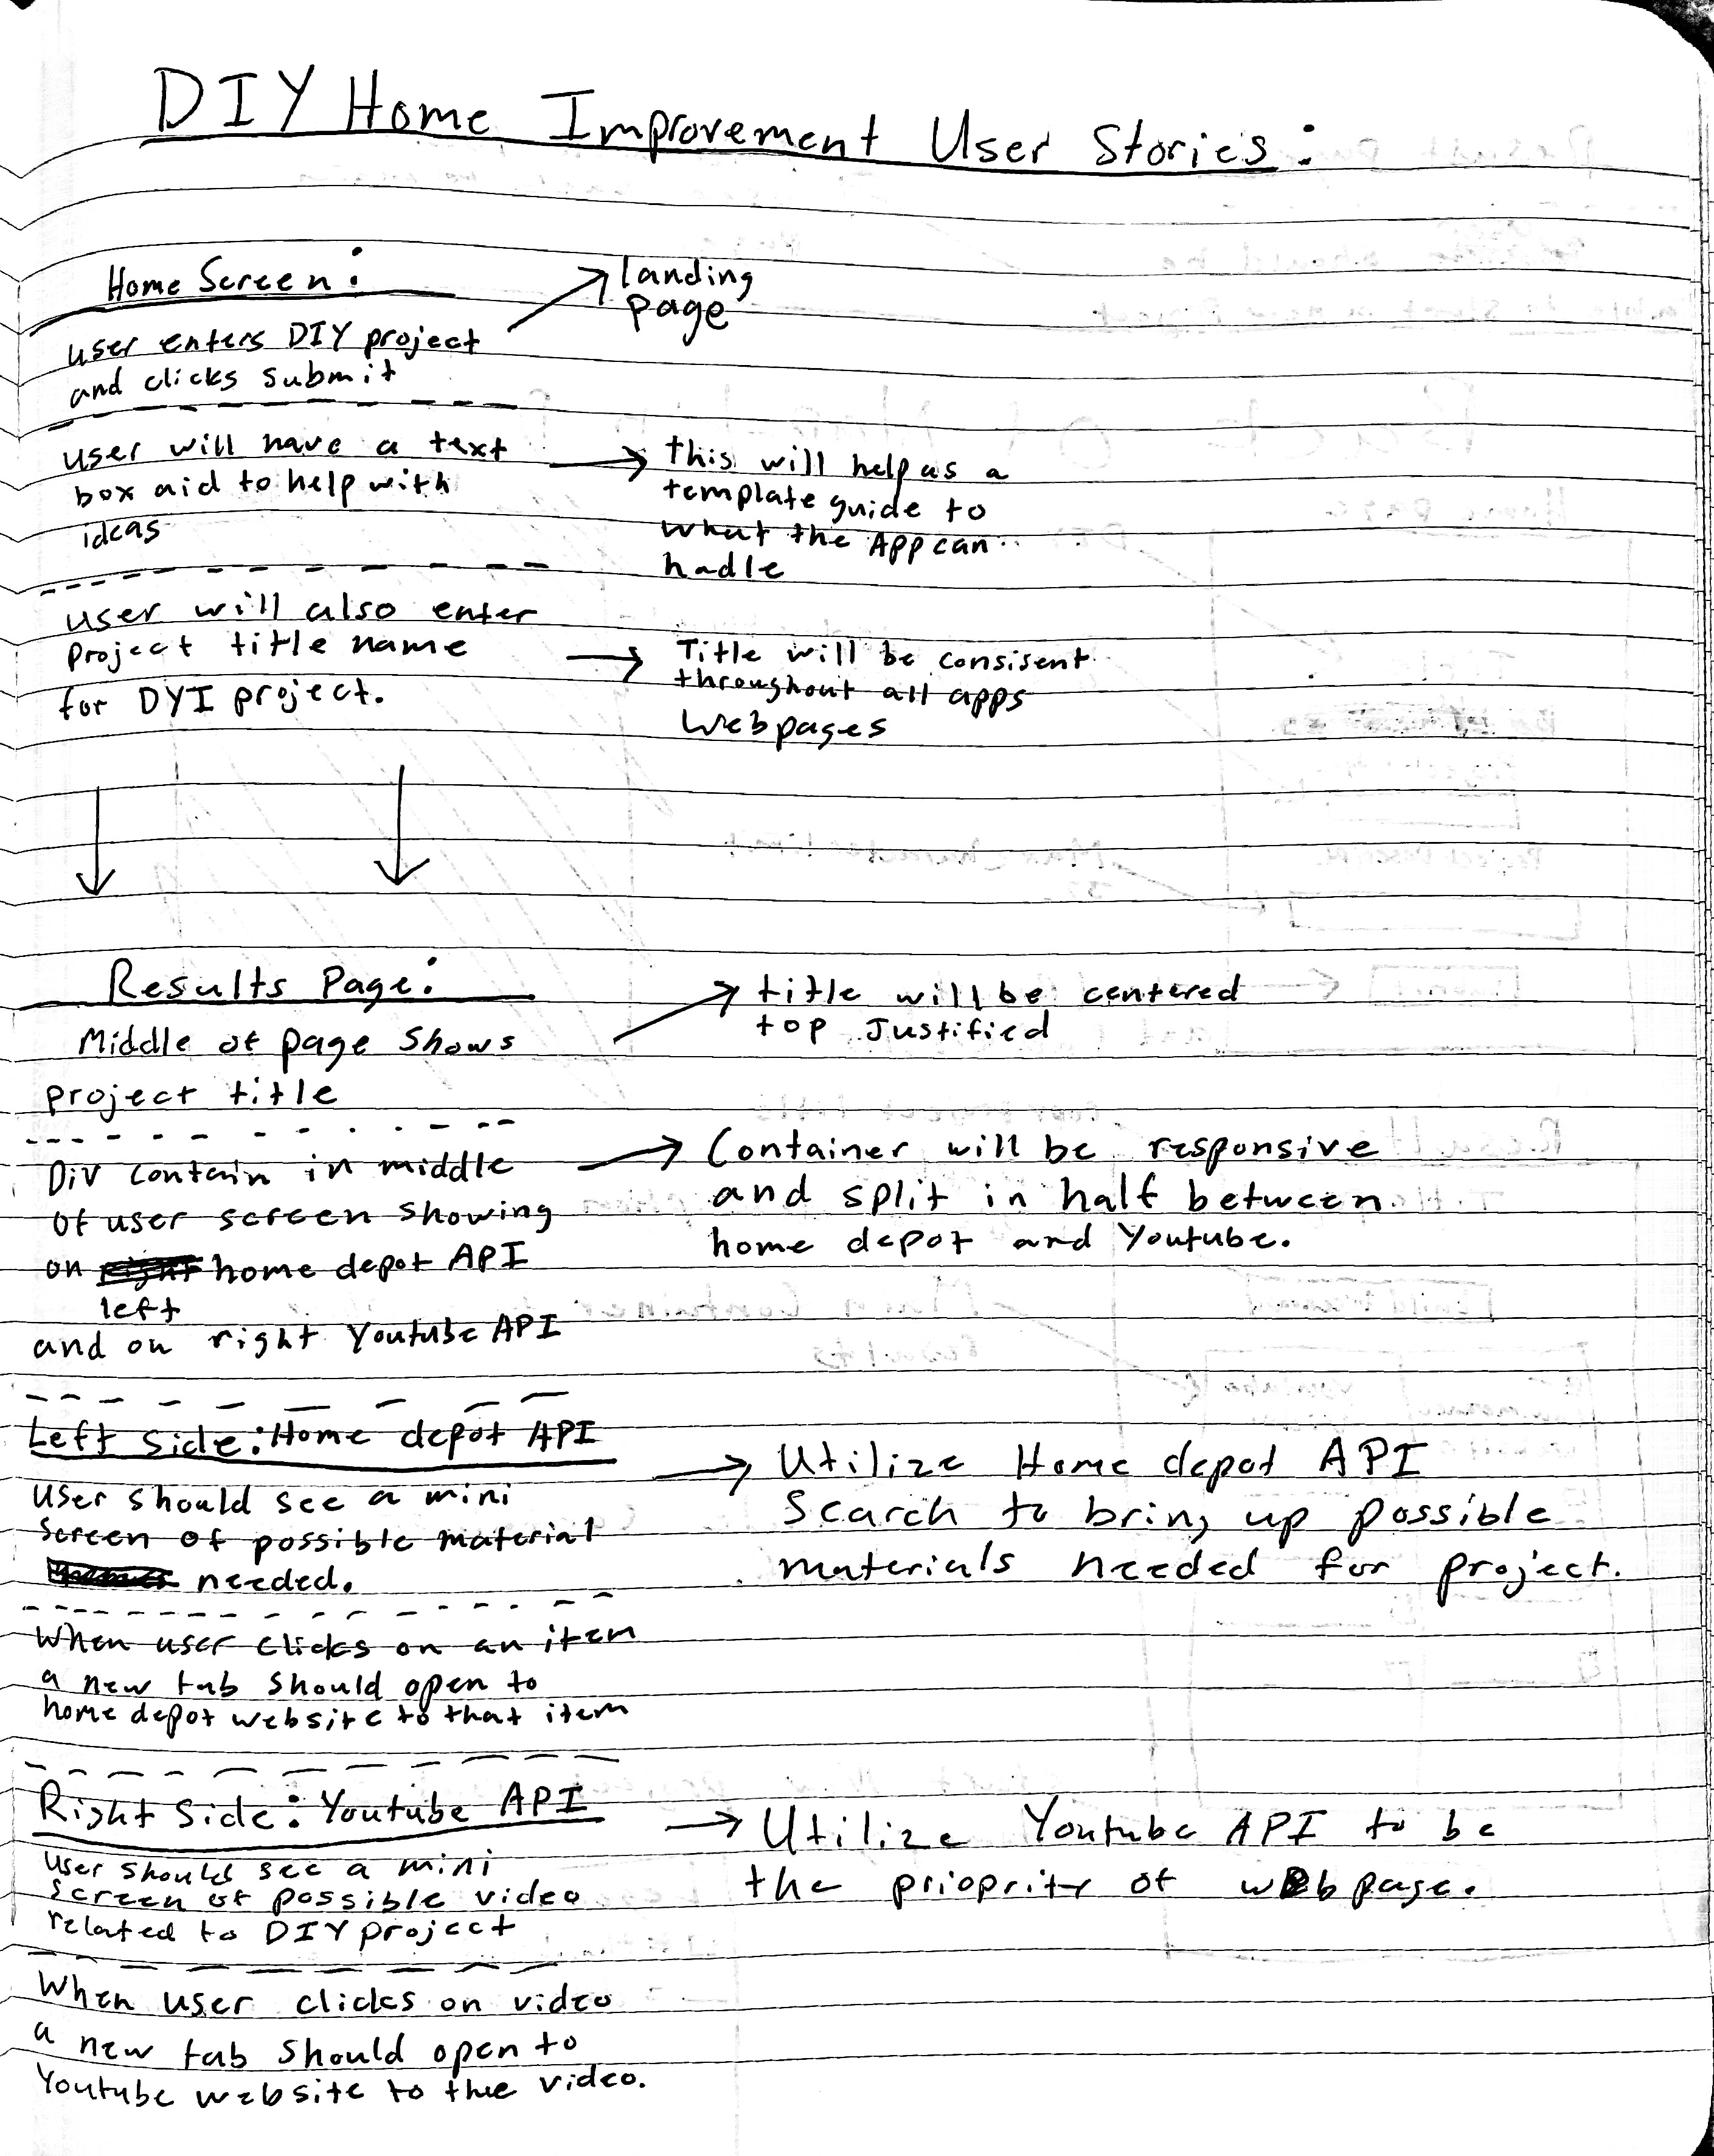 DIY Home Improvement User Stories:
Home Screen:
user enters DIY project
and clicks submit
landing
page
user will have a text
box aid to help with
ideas
this will help as a
template guide to
what the App can
hadle
user will also enter
project title name
for DYI project.
Title will be consisent
throughout all apps
Webpages
Results Page:
Middle of page shows
project title
title will be centered
top Justified
Div contain in middle
of user screen showing
on home depot API
left
and on right Youtube API
Container will be responsive
and split in half between
home depot and Youtube.
Left side: Home depot API
User should see a mini
screen of possible material
needed.
Utilize Home depot API
Search to bring up possible
materials needed for project.
When user clicks on an item
a new tab should open to
home depot website to that item
Right Side: Youtube API
user should see a mini
screen of possible video
related to DIY project
Utilize Youtube API to be
the prioprity of web page.
When user clicks on video
a new tab should open to
Youtube website to the video.